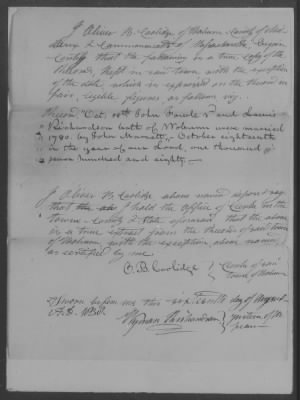 I Oliver B. Coolidge of Woburn County of Middlesex
& Commonwealth of Massachusetts,
Certify that the following is a true copy of the
Record, kept in said town with the exception
of the date, which is expressed on the record in
fair, legible figures, as follows viz.
Record Oct. 18th John Fowle & and
Richardson both of Woburn were married
1780. by John Marrett, October eighteenth
in the year of our Lord, one thousand
seven hundred and eighty.
I Oliver B. Coolidge above named depose & say
that I hold the Office of Clerk in the
town County & State aforesaid that the above
is a true extract from the records of said town
of Woburn with the exception above named,
as certified by me.
O. B. Coolidge Clerk of said
town of Woburn
Sworn before me this sixteenth day of August
A.D. 1838.
Justice of the
Peace